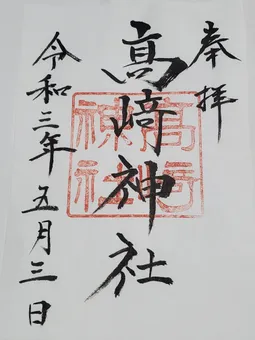 奉拝
高崎神社
髙﨑神社
令和三年五月三日